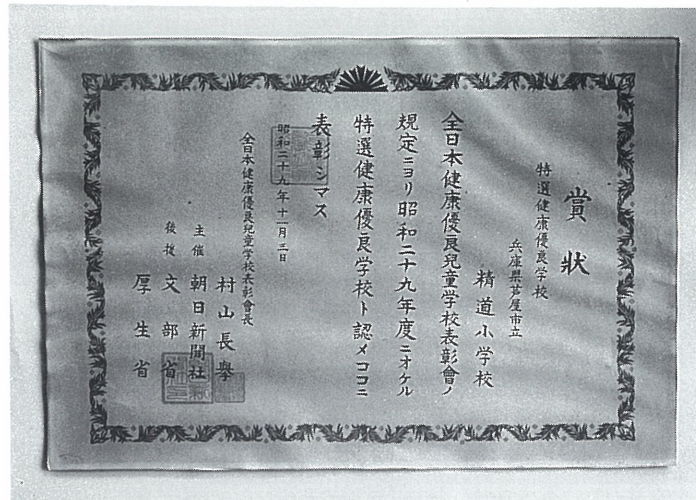 賞状
特選健康優良学校
兵庫県芦屋市立
精道小学校
全日本健康優良児童学校表彰會ノ
規定ニヨリ昭和二十九年度ニオケル
特選健康優良学校ト認メココニ
表彰シマス
昭和二十九年十一月三日
全日本健康優良兒童学校表彰會長
村山長擧
主催 朝日新聞社
後援 文部省
厚生省